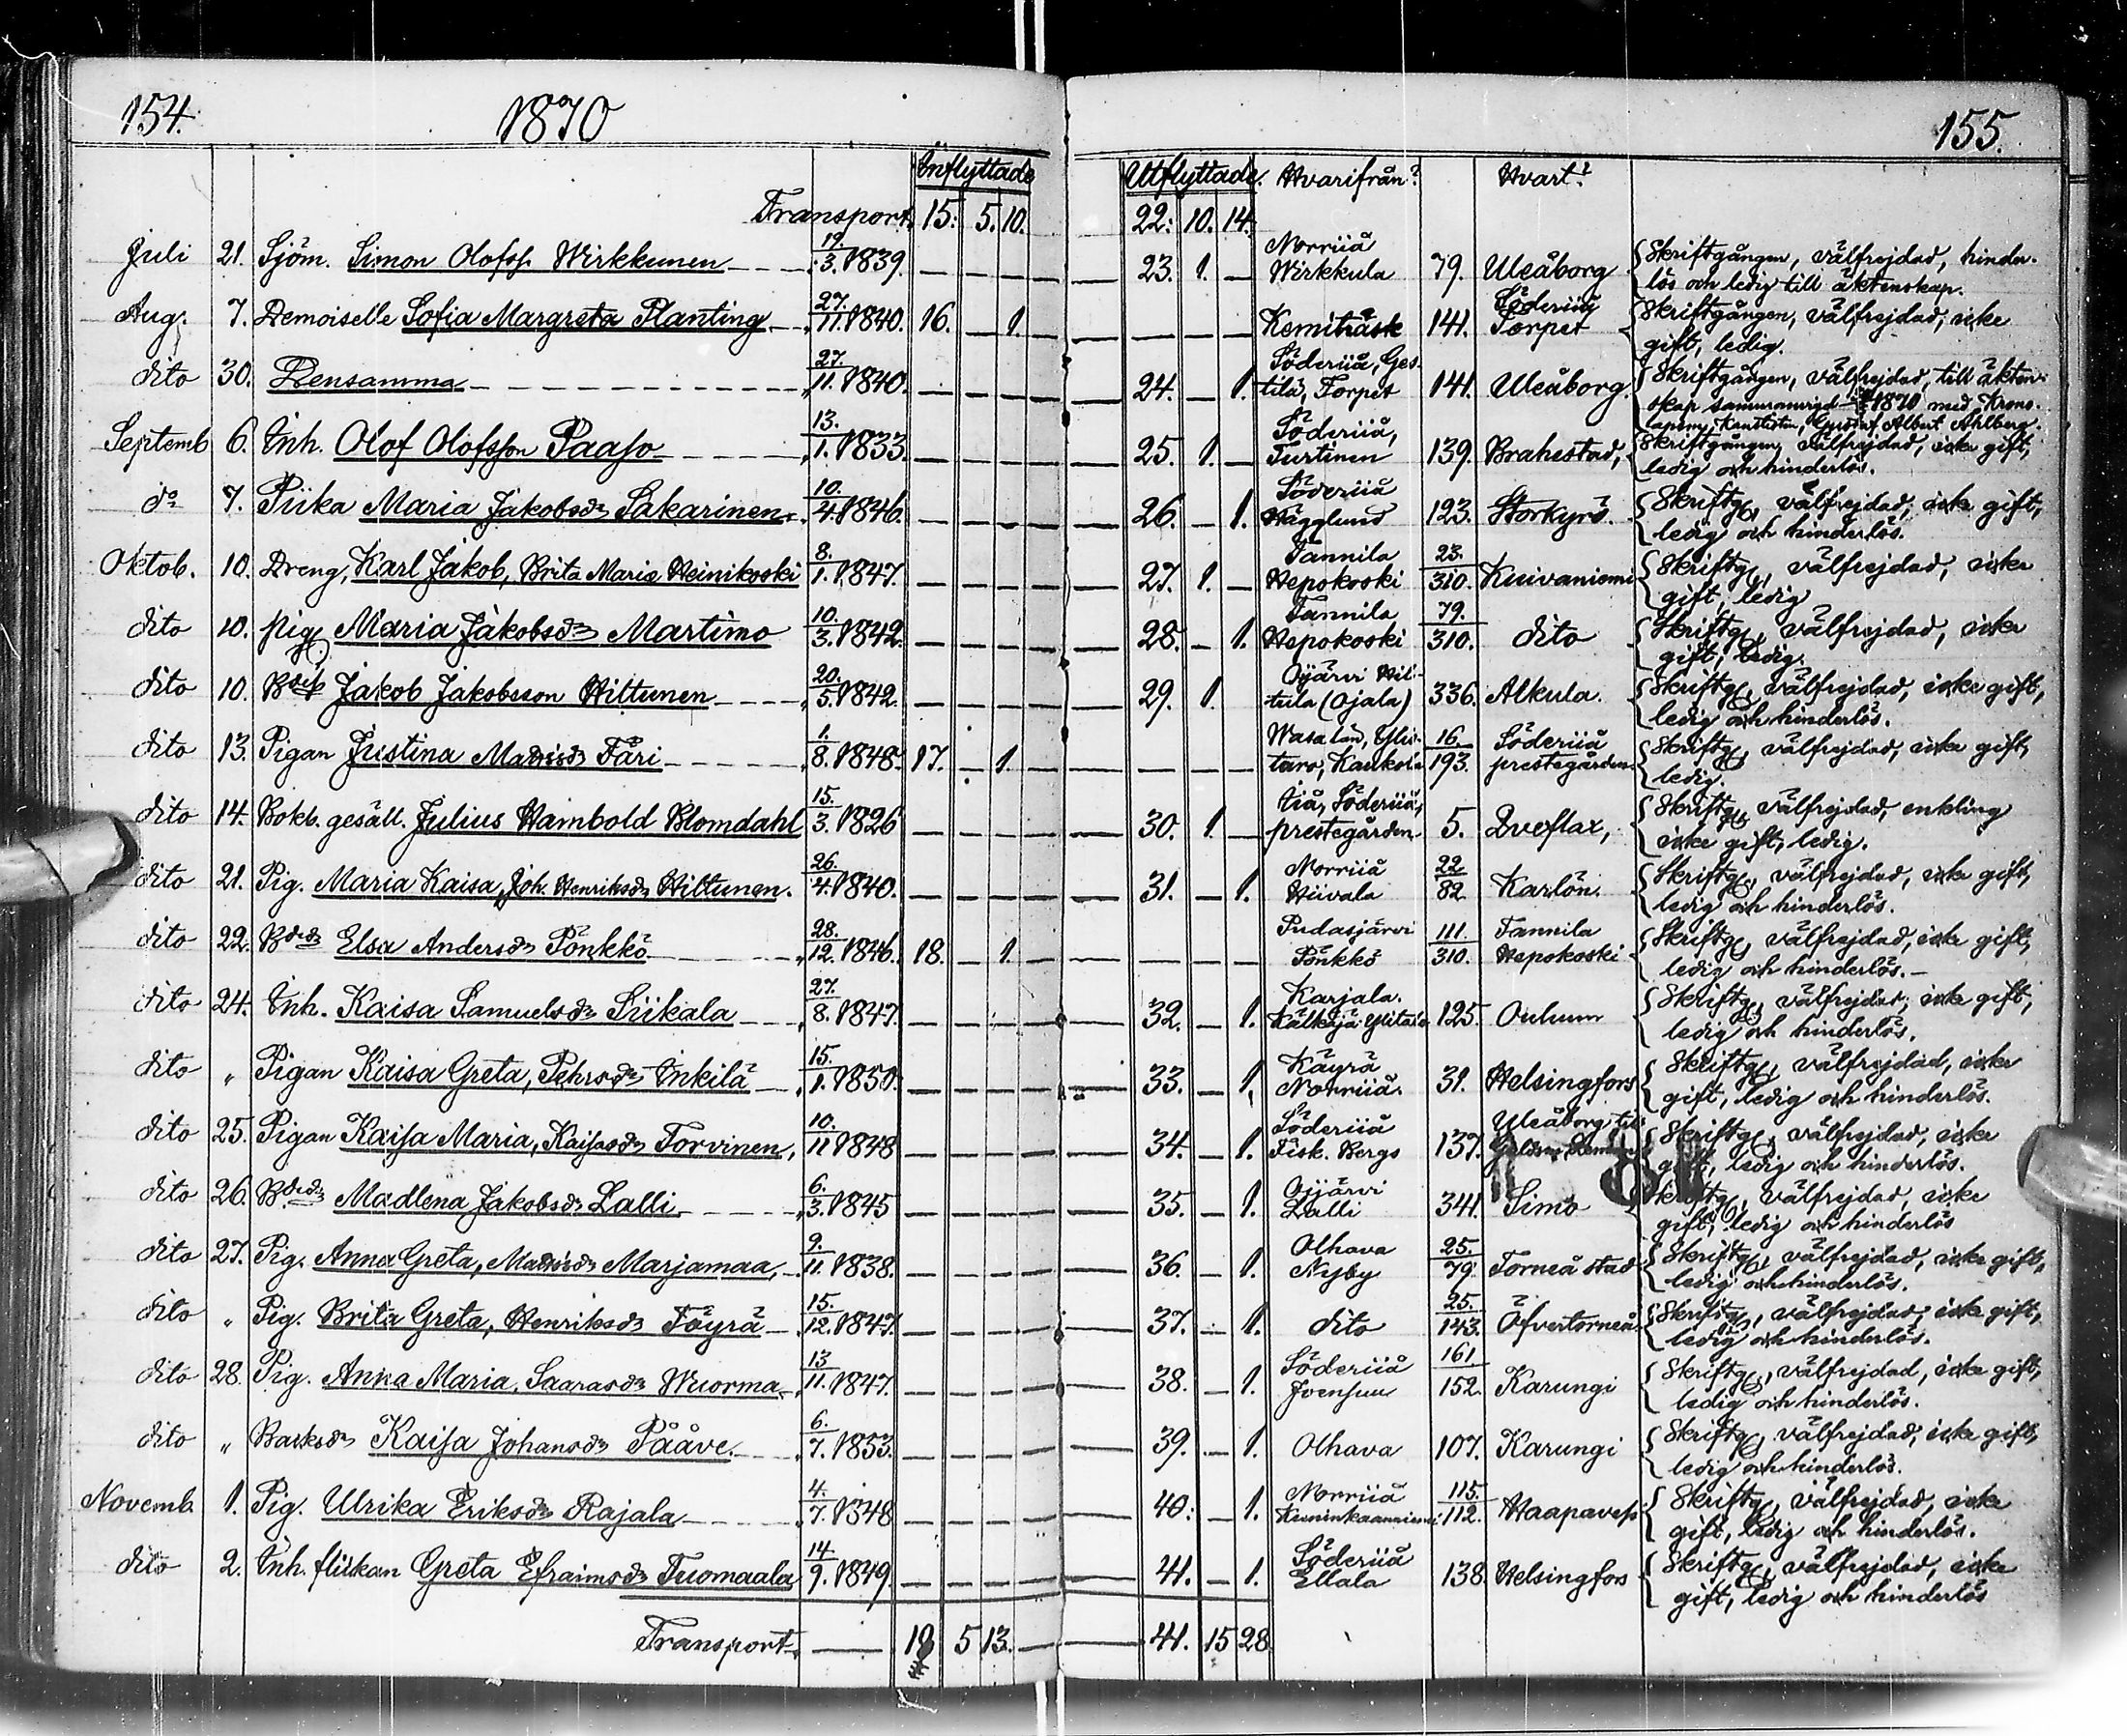 154. 1870 155.
Inflyttade Utflyttade. Hvarifrån? Hvart?
Transport 15. 5. 10. 22. 10. 14.
Juli 21. Sjöm. Simon Olofss. Wirkkunen 19./3. 1839. — — — — 23. 1. — Norriiå Wirkkula 79. Uleåborg Skriftgången, välfrejdad, hinder-
lös och ledig till äktenskap.
Aug. 7. Demoiselle Sofia Margreta Planting 27./11. 1840. 16. — 1. — — — — Kemiträsk 141. Söderiiå Torpet Skriftgången, välfrejdad, icke
gift, ledig.
dito 30. Densamma 27./11. 1840. — — — — 24. — 1. Söderiiå, Ges-
tilä, Torpet 141. Uleåborg. Skriftgången, välfrejdad, till äkten-
skap 1870 med Krono-
Gustaf Albert Ahlberg.
Septemb 6. Inh. Olof Olofsson Paaso 13./1. 1833. — — — — 25. 1. — Söderiiå, Turtinen 139. Brahestad, Skriftgången, välfrejdad, icke gift,
ledig och hinderlös.
do 7. Piika Maria Jakobsdr Sakarinen 10./4. 1846. — — — — 26. — 1. Söderiiå Hägglund 123. Storkyrö. Skriftg, välfrejdad, icke gift,
ledig och hinderlös.
Oktob. 10. Dreng, Karl Jakob, Brita Maria Heinikoski 8./1. 1847. — — — — 27. 1. — Tannila Hepokoski 23./310. Kuivaniemi Skriftg, välfrejdad, icke
gift, ledig
dito 10. pig Maria Jakobsdr Martimo 10./3. 1842. — — — — 28. — 1. Tannila Hepokoski 79./310. dito Skriftg, välfrejdad, icke
gift, ledig.
dito 10. Jakob Jakobsson Hiltunen 20./5. 1842. — — — — 29. 1. Oijärvi Hil-
tula (Ojala) 336. Alkula. Skriftg, välfrejdad, icke gift,
ledig och hinderlös.
dito 13. Pigan Justina Matsdr Färi 1./8. 1848. 17. — 1. — — — — Wasa län, Ylis-
taro, Kaukola 16./193. Söderiiå prestegården. Skriftg, välfrejdad, icke gift,
ledig.
dito 14. Bokb. gesäll. Julius Hambold Blomdahl 15./3. 1826 — — — — 30. 1. — Iiå, Söderiiå,
prestegården. 5. Qveflax, Skriftg, välfrejdad, enkling
icke gift, ledig.
dito 21. Pig. Maria Kaisa, Joh. Henriksdr Hiltunen. 26./4. 1840. — — — — 31. — 1. Norriiå Hiivala 22/82 Karlön. Skriftg, välfrejdad, icke gift,
ledig och hinderlös.
dito 22. Elsa Andersdr Pönkkö 28./12. 1846. 18. — 1. — — — — Pudasjärvi Pönkkö 111./310. Tannila Hepokoski Skriftg, välfrejdad, icke gift,
ledig och hinderlös. —
dito 24. Inh. Kaisa Samuelsdr Siikala 27./8. 1847. — — — — 32. — 1. Karjala. 125. Oulunn Skriftg, välfrejdad, icke gift,
ledig och hinderlös.
dito „ Pigan Kaisa Greta, Pehrsdr Inkilä 15./1. 1850. — — — — 33. — 1. Käyrä Norriiå. 31. Helsingfors Skriftg, välfrejdad, icke
gift, ledig och hinderlös.
dito 25. Pigan Kaisa Maria, Kaisasdr Torvinen, 10./11 1848 — — — — 34. — 1. Söderiiå Fisk. Bergs 137. Uleåborg till Skriftg, välfrejdad, icke
gift, ledig och hinderlös.
dito 26. Madlena Jakobsdr Lalli 6./3. 1845 — — — — 35. — 1. Oijärvi Lalli 341. Simo Skriftg, välfrejdad, icke
gift, ledig och hinderlös
dito 27. Pig. Anna Greta, Matsdr Marjamaa, 9./11. 1838. — — — — 36. — 1. Olhava Nyby 25./79. Torneå stad Skriftg, välfrejdad, icke gift,
ledig och hinderlös.
dito „ Pig. Brita Greta, Henriksdr Töyrä 15./12. 1847. — — — — 37. — 1. dito 25./143. Öfvertorneå. Skriftg, välfrejdad, icke gift,
ledig och hinderlös.
dito 28. Pig. Anna Maria, Saarasdr Wuorma 13/11. 1847. — — — — 38. — 1. Söderiiå Joensuu 161/152. Karungi Skriftg, välfrejdad, icke gift,
ledig och hinderlös.
dito „ Backsdr Kaisa Johansdr Pååve. 6./7. 1853. — — — — 39. — 1. Olhava 107. Karungi Skriftg, välfrejdad, icke gift,
ledig och hinderlös.
Novemb. 1. Pig. Ulrika Eriksdr Rajala 4./7. 1848 — — — — 40. — 1. Norriiå 115./112. Haapavesi Skriftg, välfrejdad, icke
gift, ledig och hinderlös.
dito 2. Inh. flickan Greta Efraimsdr Tuomaala 14/9. 1849. — — — — 41. — 1. Söderiiå Ellala 138. Helsingfors Skriftg, välfrejdad, icke
gift, ledig och hinderlös
Transport. — 18 5 13. — — 41. 15 28.